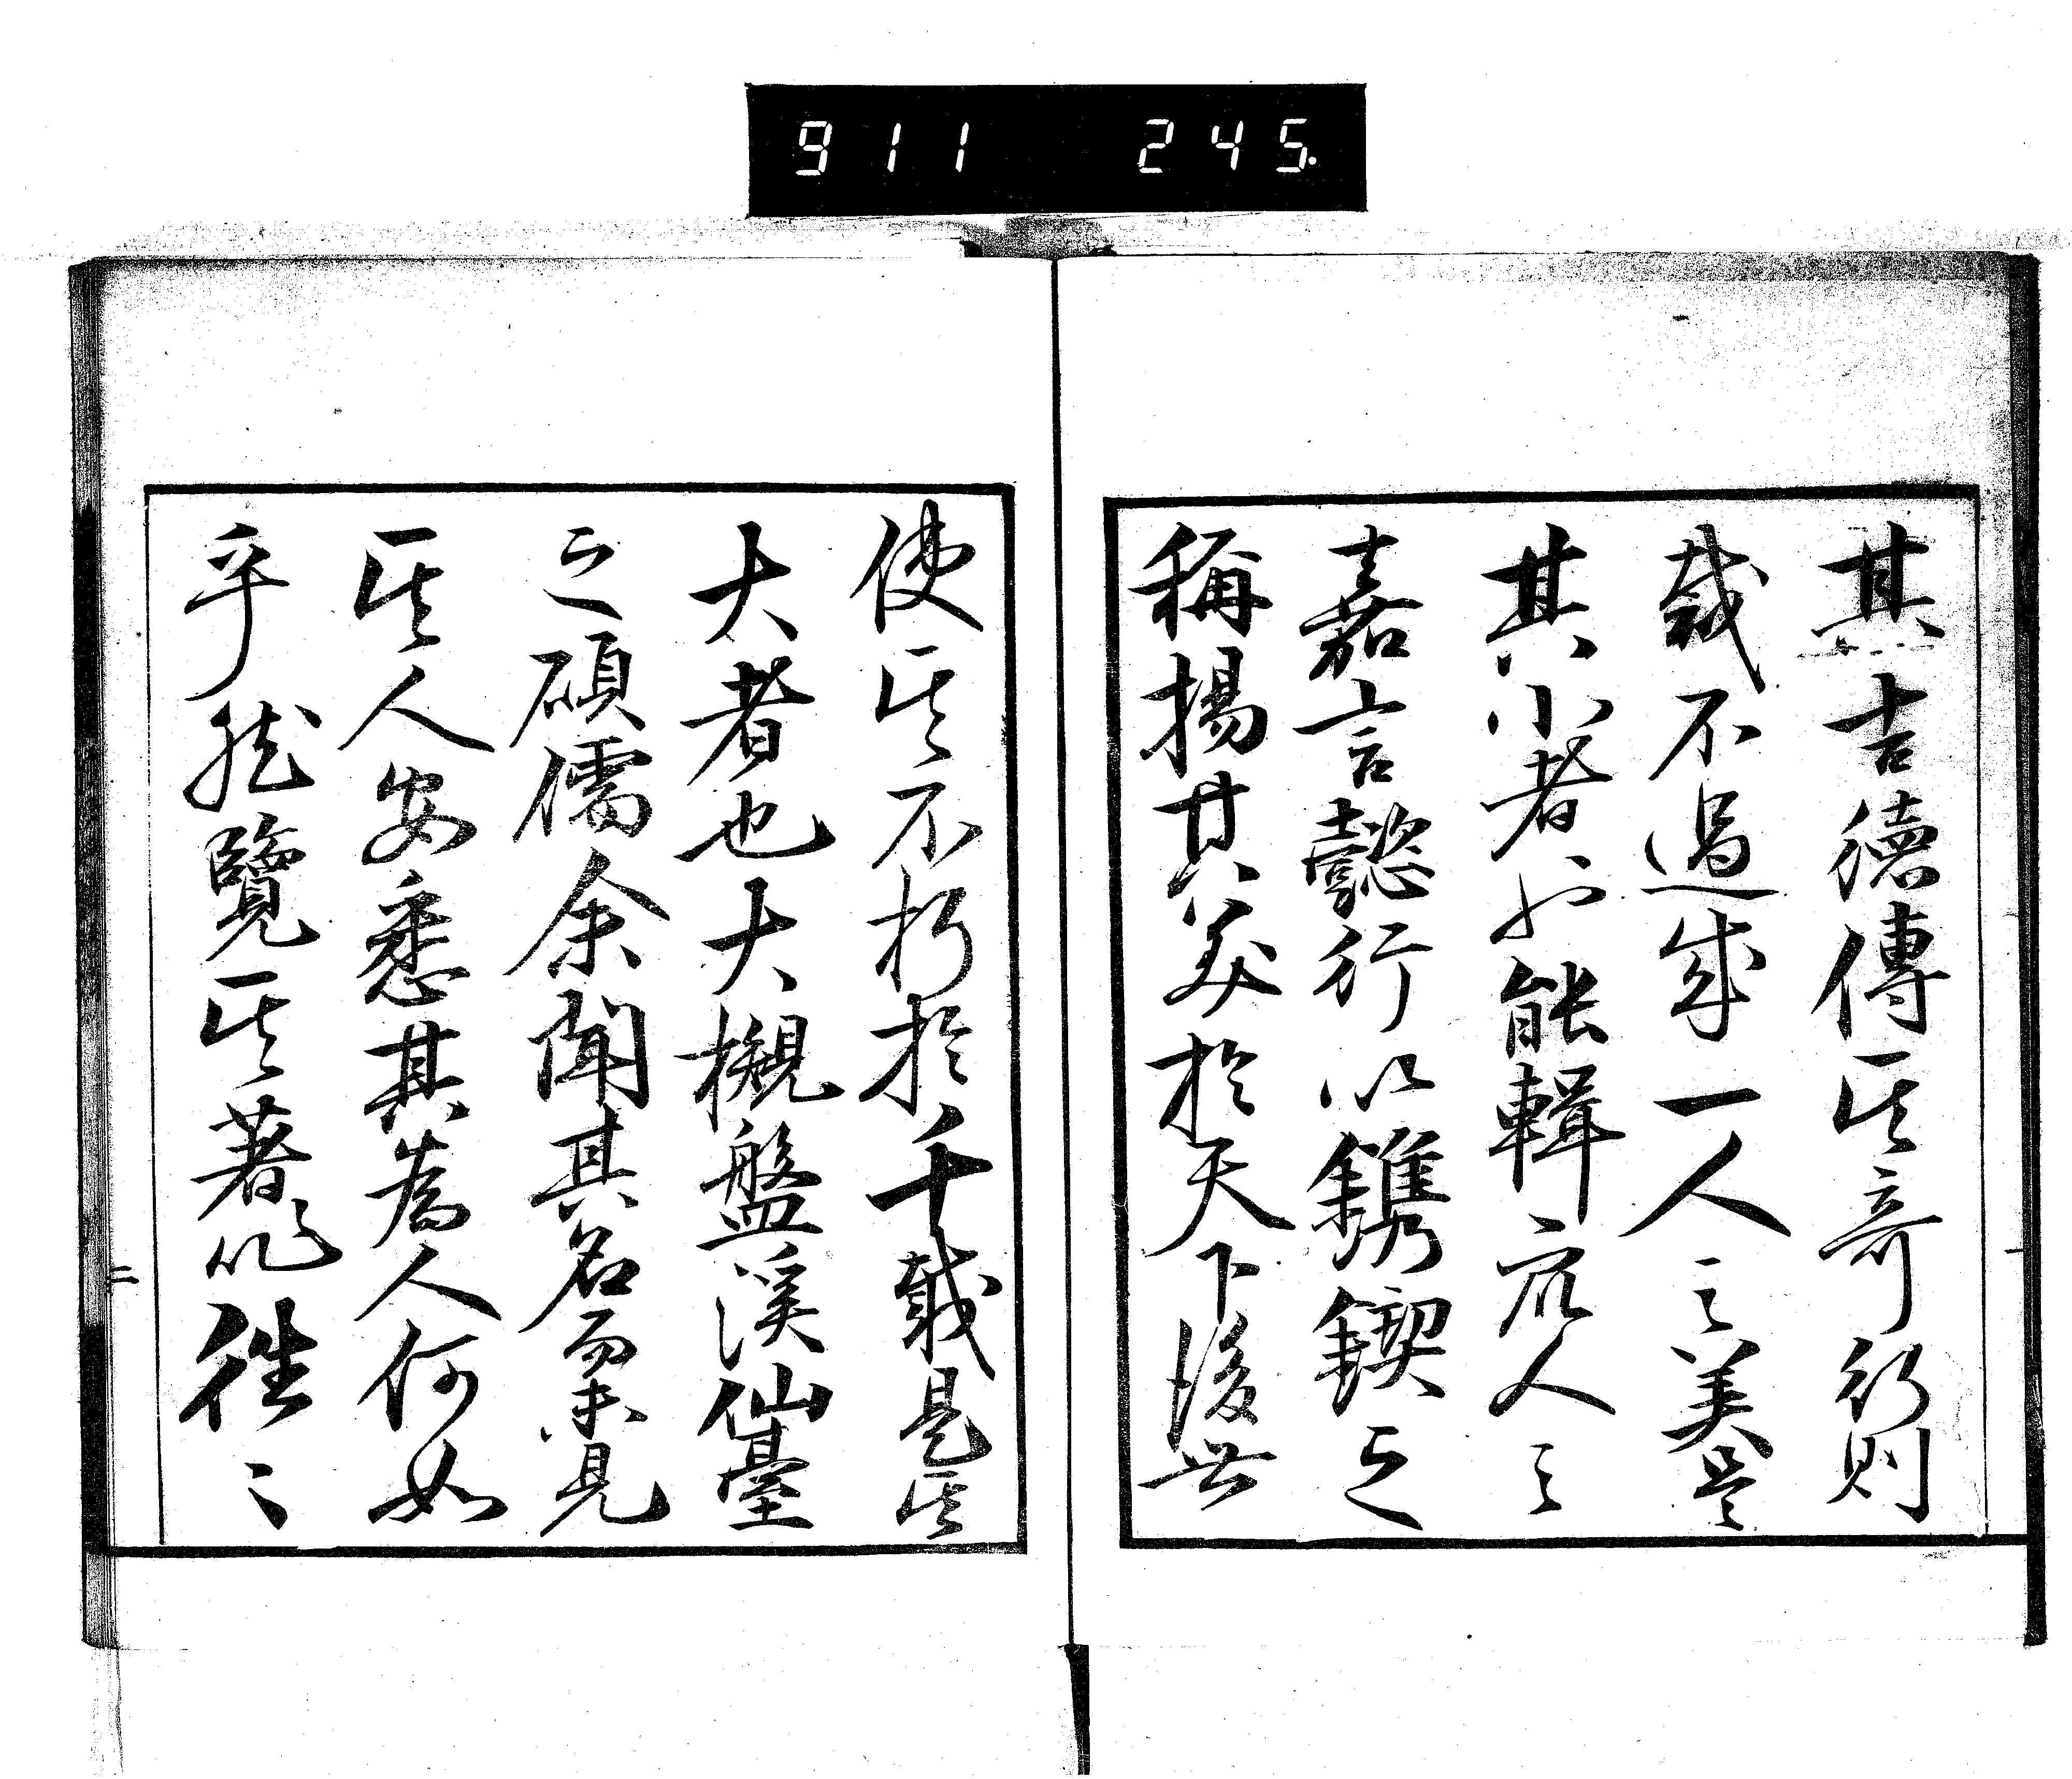 911 245
其吉德傳其奇行則
哉不過成一人之美是
其小者也能輯庶人之
嘉言懿行以鐫鍥之
稱揚其美於天下後世
使其不朽於千載是其
大者也大大槻盤溪仙臺
之碩儒余聞其名而未見
其人安悉其為人何如
乎然覽其著作往々
二